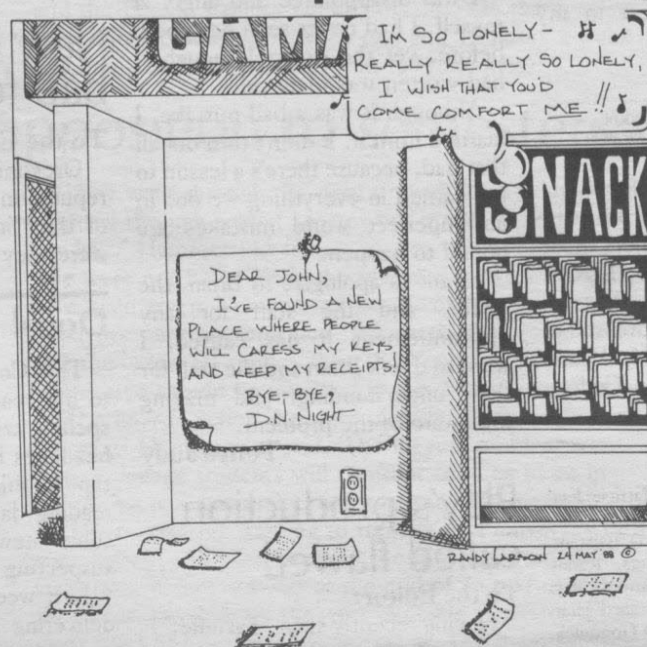 CAMA
IM SO LONELY-
REALLY REALLY SO LONELY,
I WISH THAT YOU'D
COME COMFORT ME!!
SNACK
DEAR JOHN,
I'VE FOUND A NEW
PLACE WHERE PEOPLE
WILL CARESS MY KEYS
AND KEEP MY RECEIPTS!
BYE-BYE,
D.N. NIGHT
RANDY LARMON 24 MAY 88 ©